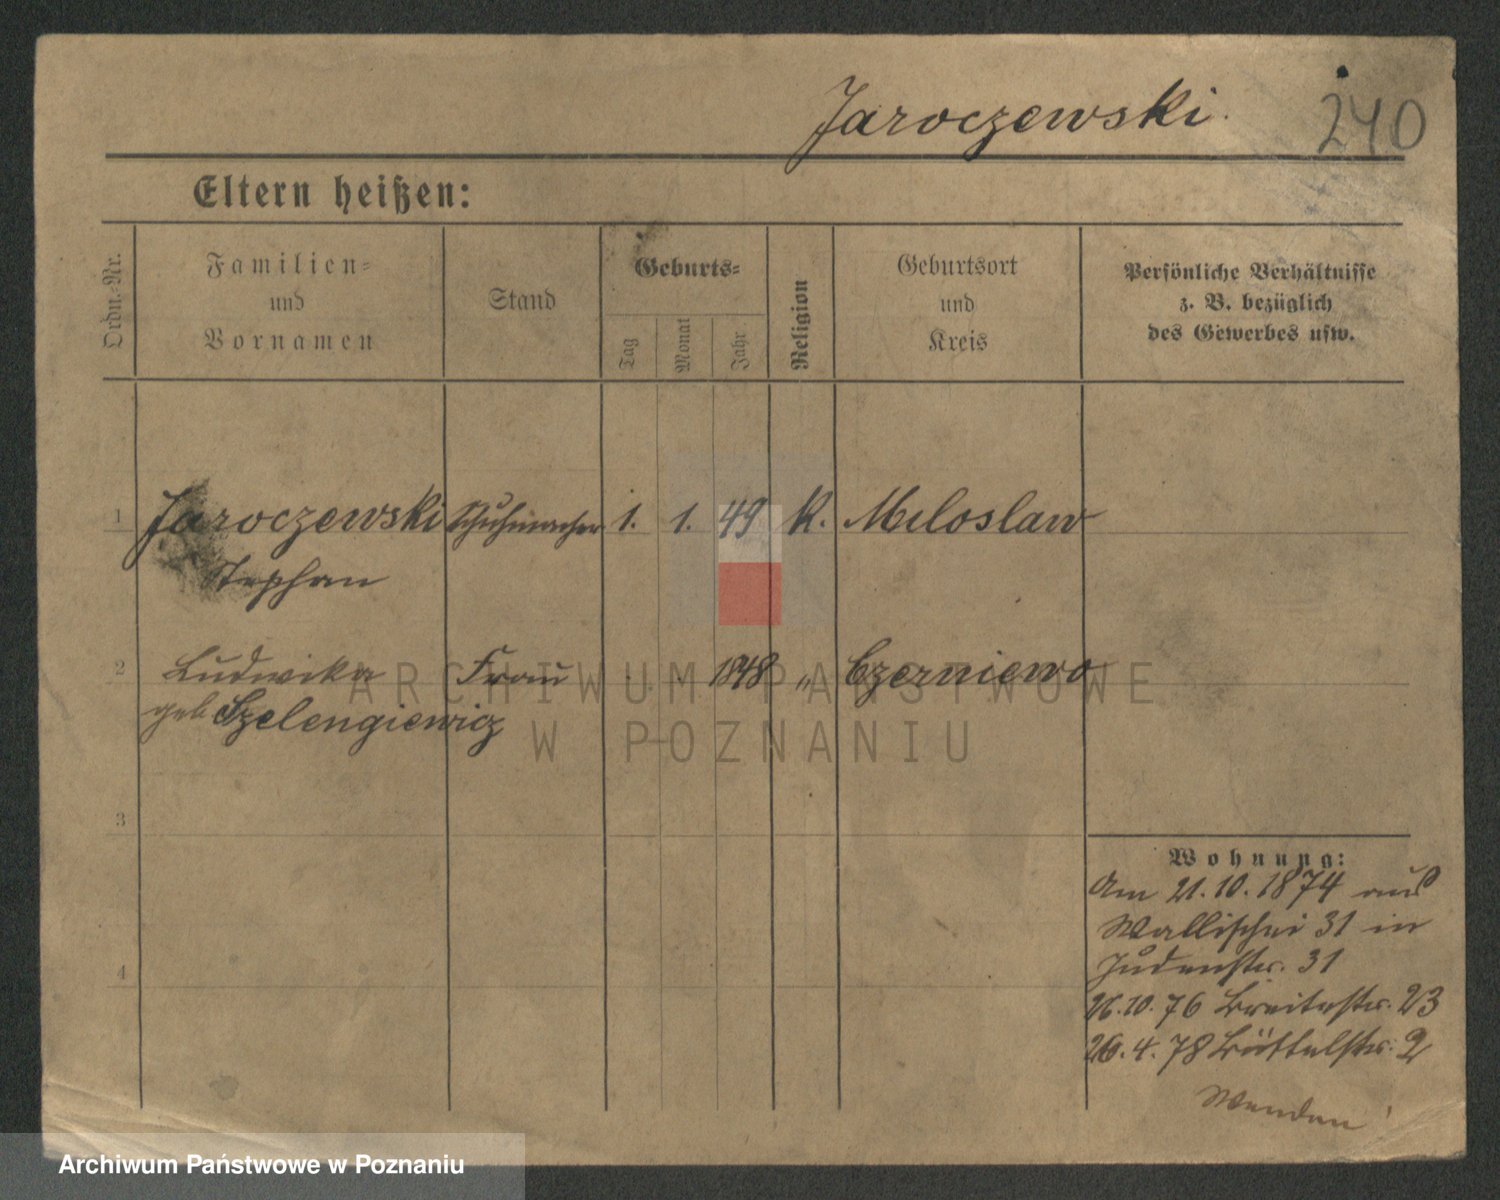 Jaroczewski.
240
Eltern heißen:
Ordn.-Nr.
Familien-
und
Vornamen
Stand
Geburts-
Tag
Monat
Jahr
Religion
Geburtsort
und
Kreis
Persönliche Verhältnisse
z. B. bezüglich
des Gewerbes usw.
1 Jaroczewski Schuhmacher 1. 1. 49 k. Miloslaw
Stephan
2 Ludwika Frau 1848 " Czerniewo
geb Szelengiewicz
3
4
Wohnung:
Am 21.10.1874 aus
Wallischei 31 in
Judenstr. 31
26.10.76 Breitestr. 23
26.4.78 Büttelstr. 2
Wenden!
ARCHIWUM PAŃSTWOWE
W POZNANIU
Archiwum Państwowe w Poznaniu